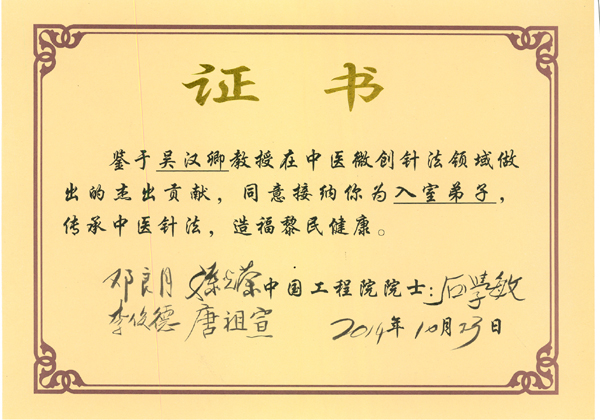 证书
鉴于吴汉卿教授在中医微创针法领域做
出的杰出贡献，同意接纳你为入室弟子，
传承中医针法，造福黎民健康。
邓良月 中国工程院院士：石学敏
李俊德 唐祖宣 2014年10月23日